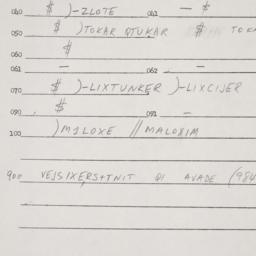 040 $ )-ZLOTE 041 — $
050 $ )TOKAR QTUKAR $ TOKA
060 $
061 — 062 —
070 $ )-LIXTUNRER )-LIXCIJER
090 $ 091 —
100 )M1LOXE // MALOXIM
900 VEJSIXERS+TNIT QI AVADE (984